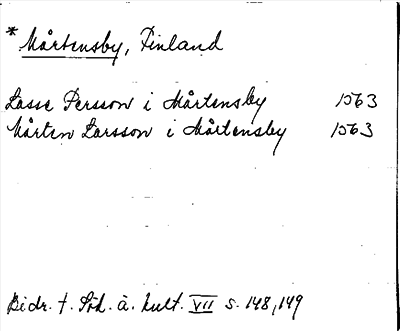 * Mårtensby, Finland
Lasse Persson i Mårtensby 1563
Mårten Larsson i Mårtensby 1563
Bidr. t. Söd. å. kult. VII s. 148, 149